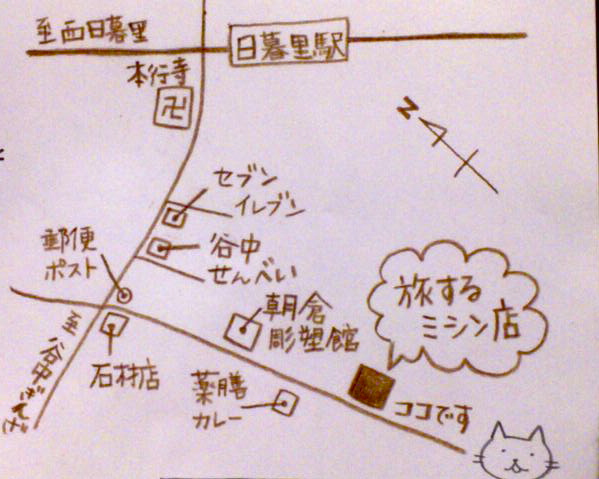 至西日暮里
日暮里駅
本行寺
卍
N
セブン
イレブン
谷中
せんべい
郵便
ポスト
朝倉
彫塑館
旅する
ミシン店
石材店
薬膳
カレー
ココです
至谷中ぎんざ